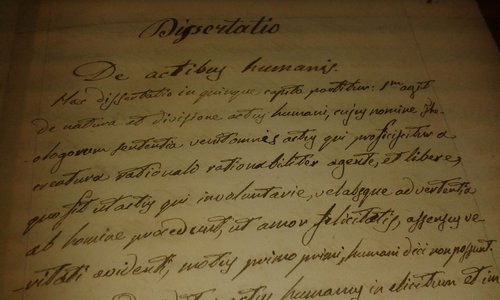 Dissertatio
De actibus humanis.
Hæc dissertatio in quinque caputa partitur: 1.um agit
de natura et divisione actus humani, cujus nomine The-
ologorum sententia venit omnis actus qui proficiscitur a
creatura rationali rationabiliter agente, et libere,
quo fit ut actus qui involuntarie, vel absque advertentia
ab homine procedunt, ut amor felicitatis, assensus ve-
ritati evidenti, motus primo primi, humani dici non possunt.
actus humanus in elicitum et im